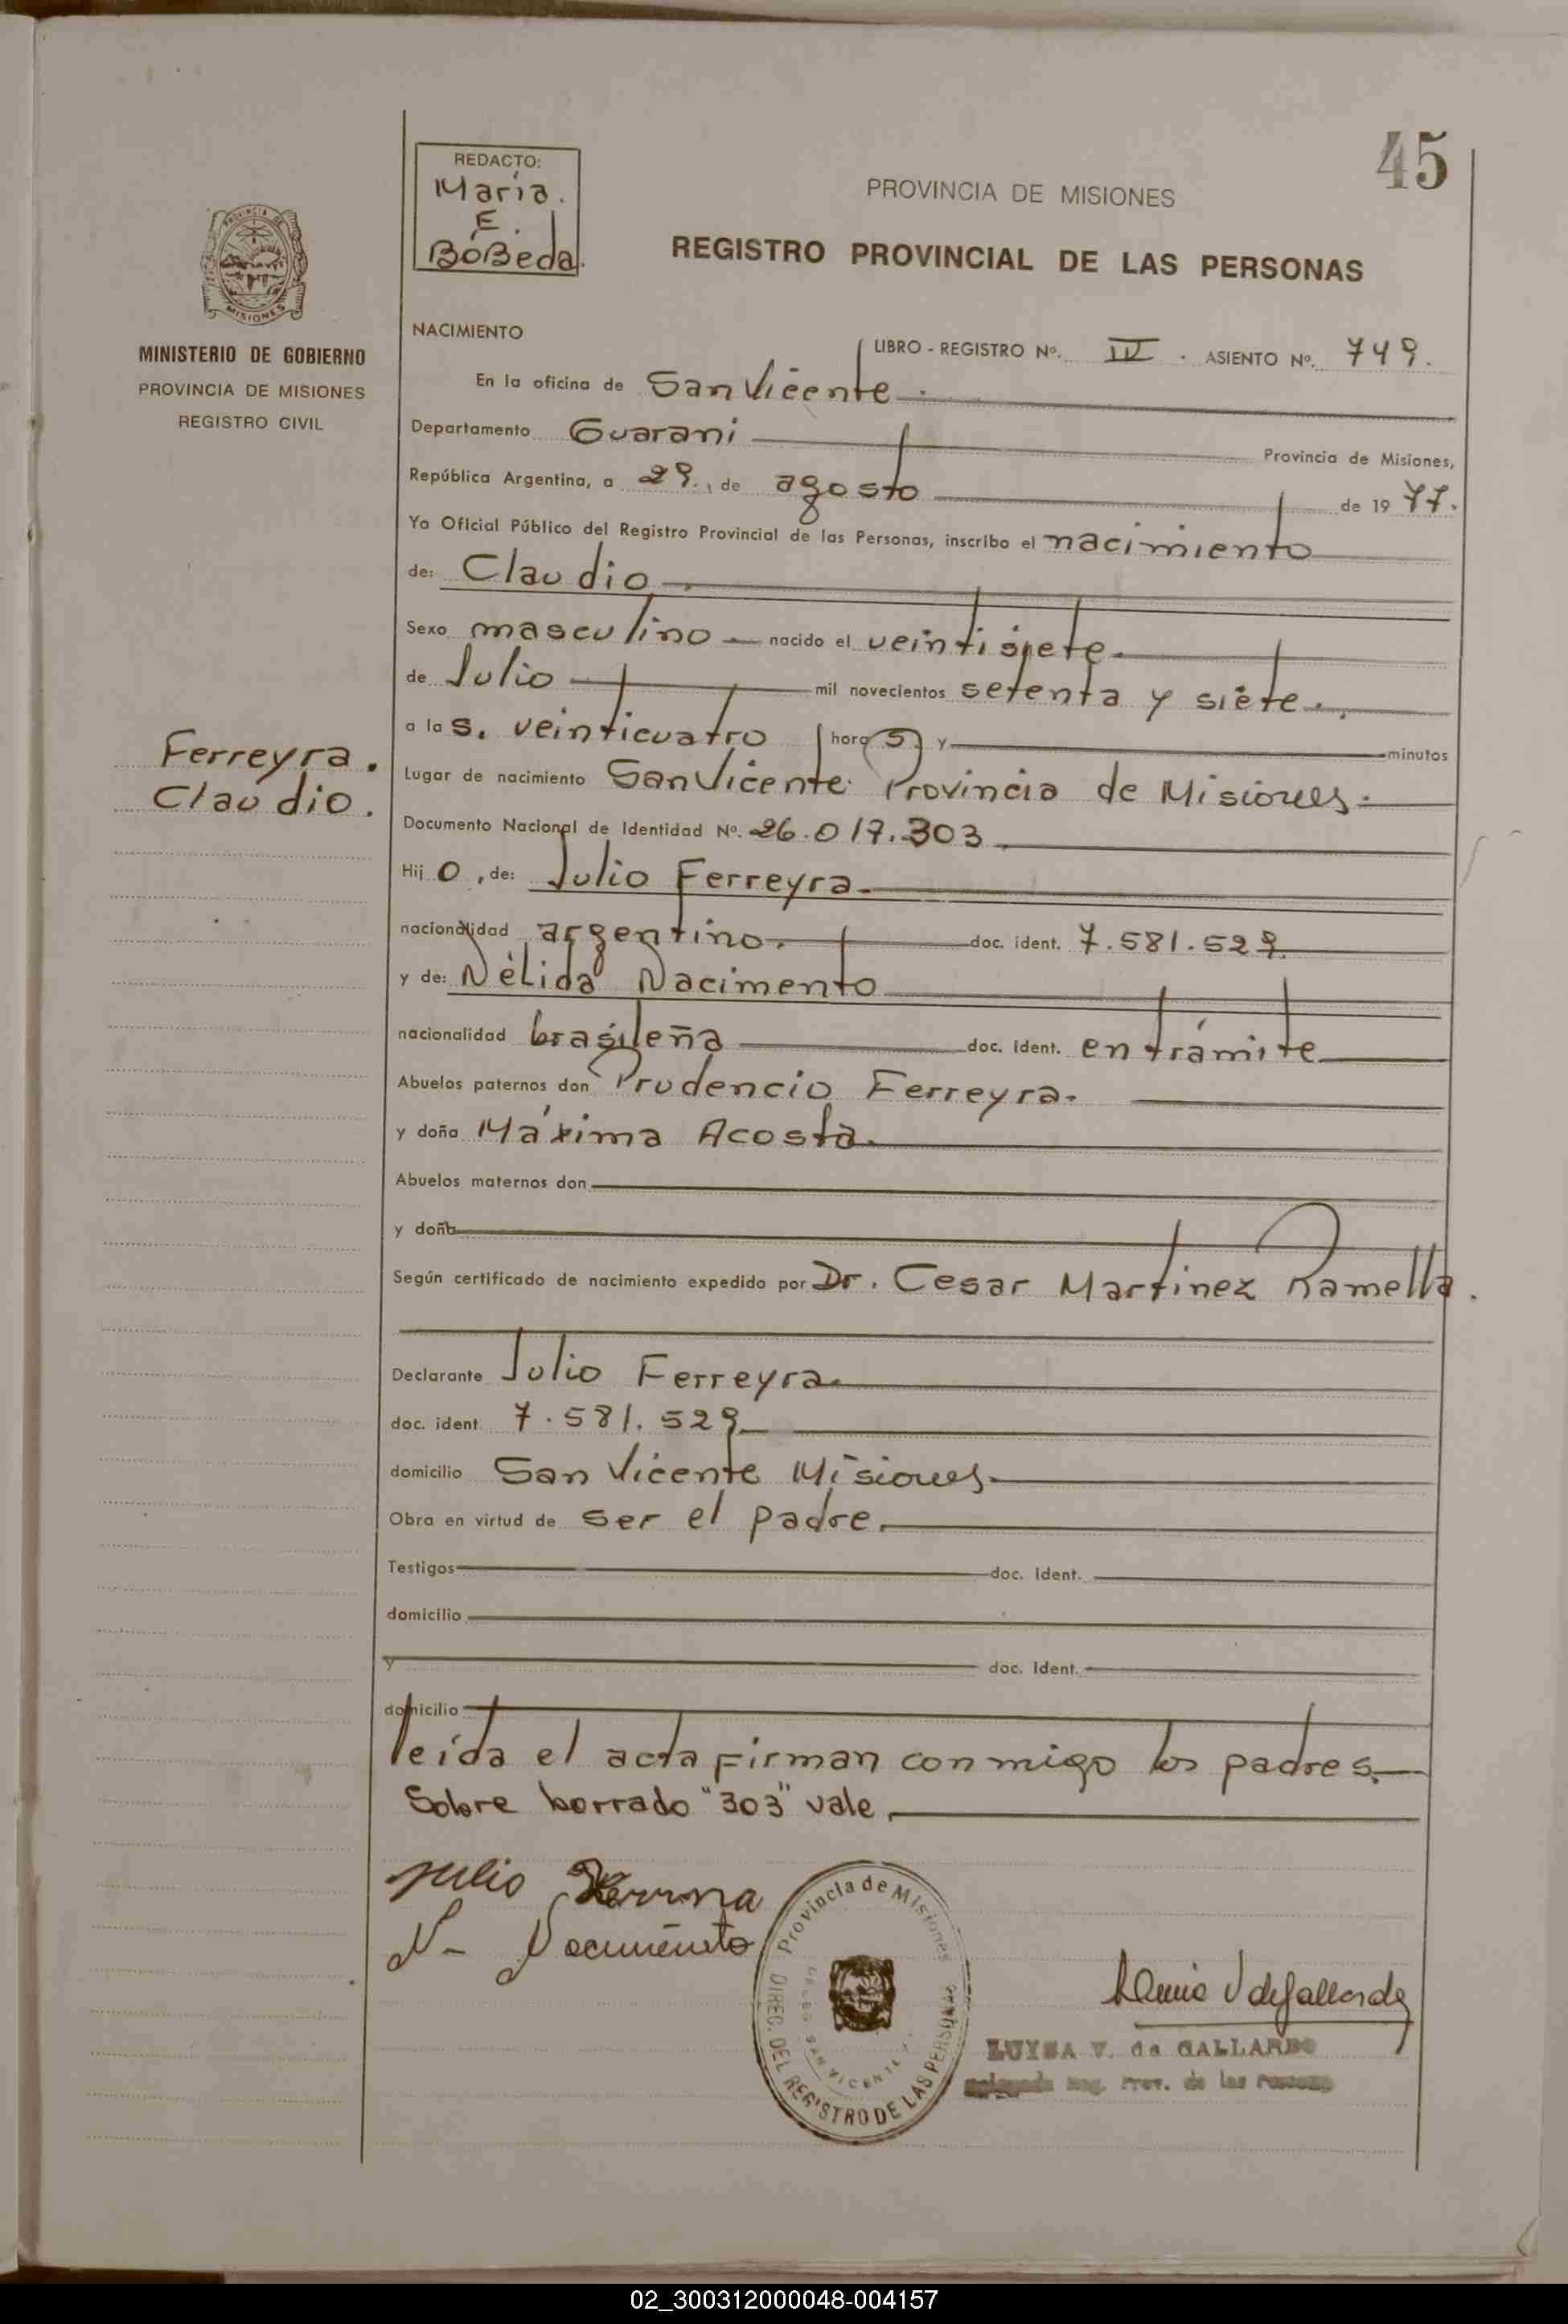 45
REDACTO:
María.
E.
BóBeda.
PROVINCIA DE MISIONES
REGISTRO PROVINCIAL DE LAS PERSONAS
PROVINCIA DE
MISIONES
MINISTERIO DE GOBIERNO
PROVINCIA DE MISIONES
REGISTRO CIVIL
NACIMIENTO
LIBRO - REGISTRO Nº. IV. ASIENTO Nº. 749.
En la oficina de San Vicente.
Departamento Guaraní Provincia de Misiones,
República Argentina, a 29., de agosto de 1977.
Yo Oficial Público del Registro Provincial de las Personas, inscribo el nacimiento
de: Claudio.
Sexo masculino nacido el veintisiete.
de Julio mil novecientos setenta y siete.
a las. veinticuatro hora(s) y minutos
Ferreyra.
Claudio.
Lugar de nacimiento San Vicente Provincia de Misiones.
Documento Nacional de Identidad Nº. 26.017.303
Hijo, de: Julio Ferreyra.
nacionalidad argentino. doc. ident. 7.581.529
y de: Nélida Nacimento
nacionalidad brasileña doc. ident. en trámite
Abuelos paternos don Prudencio Ferreyra.
y doña Máxima Acosta.
Abuelos maternos don
y doña
Según certificado de nacimiento expedido por Dr. Cesar Martinez Ramella.
Declarante Julio Ferreyra.
doc. ident. 7.581.529
domicilio San Vicente Misiones
Obra en virtud de ser el padre.
Testigos doc. ident.
domicilio
y doc. ident.
domicilio
leída el acta firman conmigo los padres.
Sobre borrado "303" vale
Julio
N-
Provincia de Misiones
DIREC. DEL REGISTRO DE LAS PERSONAS
SAN VICENTE
LUYSA V. de GALLARDO
Delegada Reg. Prov. de las Personas
02_300312000048-004157